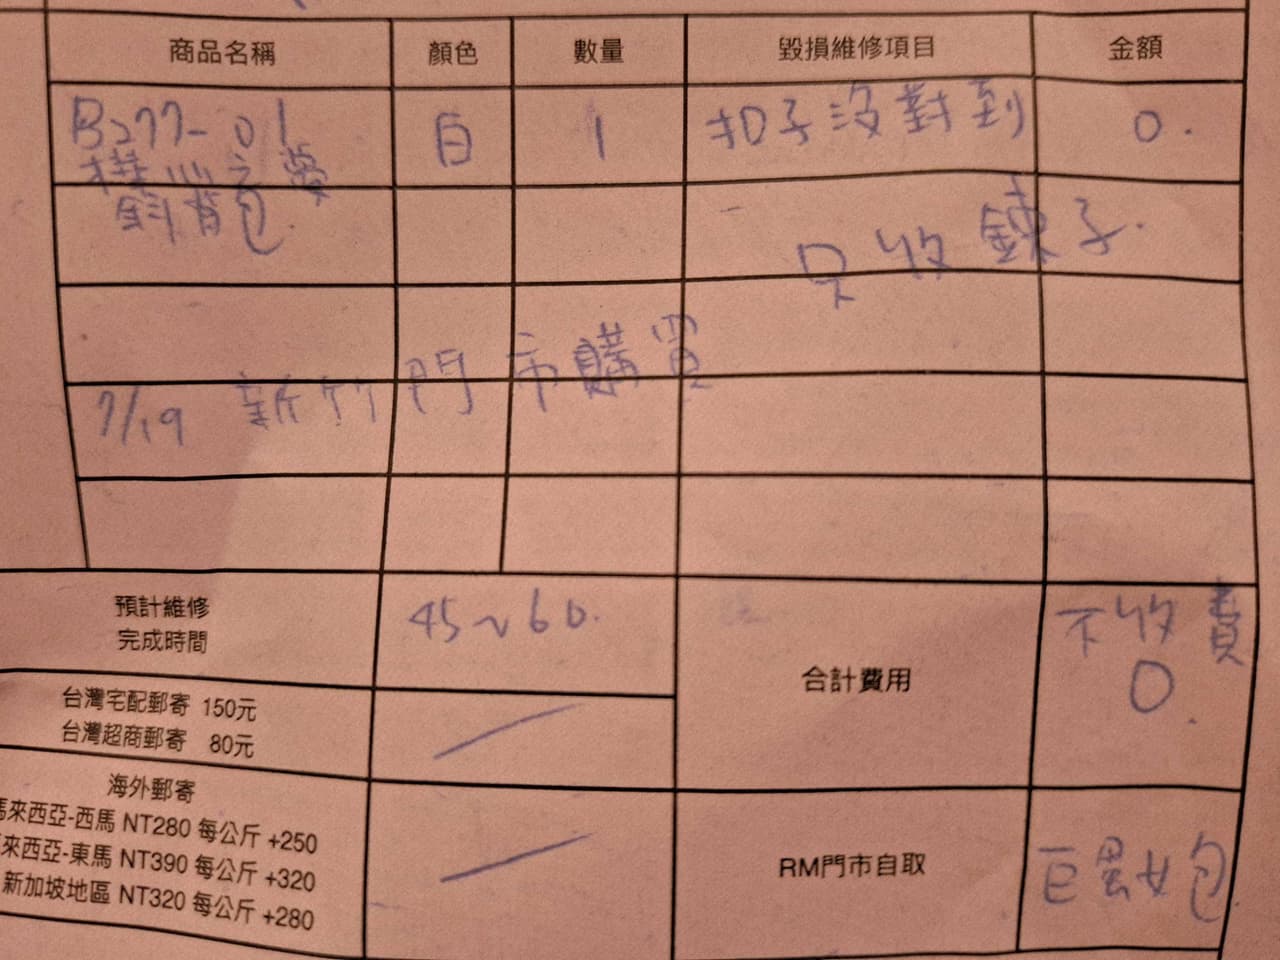 商品名稱 顏色 數量 毀損維修項目 金額
B277-01 白 1 扣子沒對到 0.
斜背包
只收鍊子.
7/19 新竹門市購買
預計維修
完成時間
45~60.
合計費用
不收費
0.
台灣宅配郵寄 150元
台灣超商郵寄 80元
海外郵寄
馬來西亞-西馬 NT280 每公斤 +250
來西亞-東馬 NT390 每公斤 +320
新加坡地區 NT320 每公斤 +280
RM門市自取
巨蛋女包